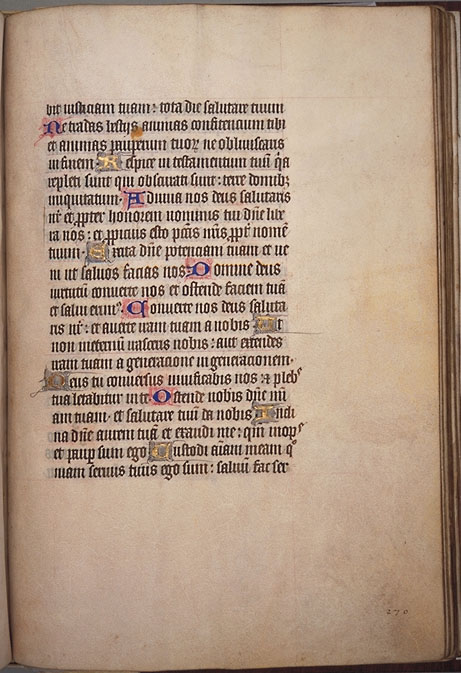 bit iusticiam tuam: tota die salutare tuum
Ne tradas bestiis animas confitencium tibi
et animas pauperum tuoꝝ ne obliuiscaris
in finem. Respice in testamentum tuū q̄a
repleti sunt qui obscurati sunt: terre domibꝫ
iniquitatum. Adiuua nos deus salutaris
nr̄ et ꝓpter honorem nominis tui dn̄e libe
ra nos: et ꝓpicius esto pcc̄is nr̄is ꝓpt̄ nomē
tuum. Excita dn̄e potenciam tuam et ve
ni ut saluos facias nos Domine deus
uirtutū conuerte nos et ostende faciem tuā
et salui erimꝰ. Conuerte nos deus saluta
ris nr̄: et auerte iram tuam a nobis Ut
non in eternū irasceris nobis: aut extendes
iram tuam a generacione in generacionem.
Deus tu conuersus uiuificabis nos ⁊ plebs
tua letabitur in te Ostende nobis dn̄e mīam
am tuam. et salutare tuū da nobis Incli
na dn̄e aurem tuā et exaudi me: qm̄ inops
et paup̄ sum ego Custodi aīam meam qͦ
niam seruus tuus ego sum: saluū fac ser
270